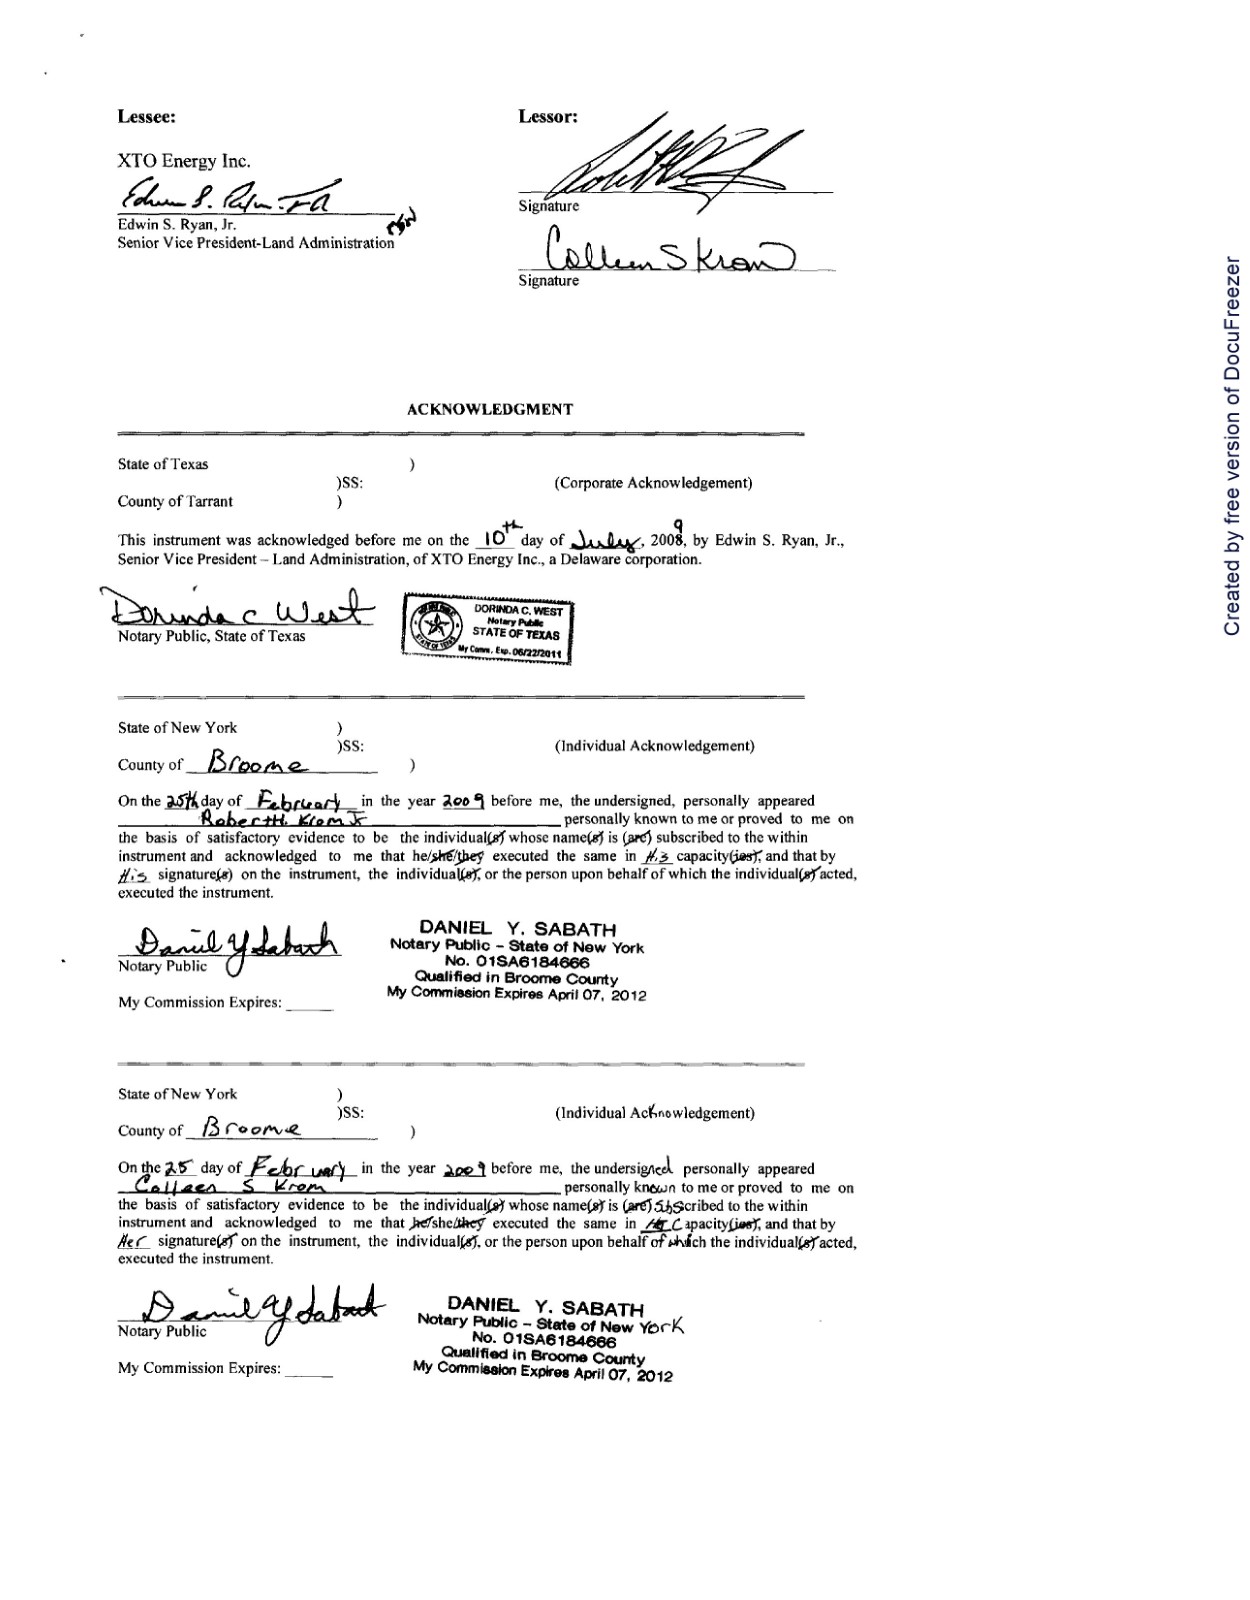 Lessee:
Lessor:
XTO Energy Inc.
Edwin S. Ryan, Jr.
Senior Vice President-Land Administration
Signature
Colleen S Krom
Signature
ACKNOWLEDGMENT
State of Texas )
)SS: (Corporate Acknowledgement)
County of Tarrant )
This instrument was acknowledged before me on the 10th day of July, 2009, by Edwin S. Ryan, Jr.,
Senior Vice President – Land Administration, of XTO Energy Inc., a Delaware corporation.
Dorinda C West
Notary Public, State of Texas
DORINDA C. WEST
Notary Public
STATE OF TEXAS
My Comm. Exp. 06/22/2011
State of New York )
)SS: (Individual Acknowledgement)
County of Broome )
On the 25th day of February in the year 2009 before me, the undersigned, personally appeared
Robert H. Krom Jr personally known to me or proved to me on
the basis of satisfactory evidence to be the individual(s) whose name(s) is (are) subscribed to the within
instrument and acknowledged to me that he/she/they executed the same in His capacity(ies), and that by
His signature(s) on the instrument, the individual(s), or the person upon behalf of which the individual(s) acted,
executed the instrument.
Daniel Y Sabath
Notary Public
My Commission Expires:
DANIEL Y. SABATH
Notary Public – State of New York
No. 01SA6184666
Qualified in Broome County
My Commission Expires April 07, 2012
State of New York )
)SS: (Individual Acknowledgement)
County of Broome )
On the 25 day of February in the year 2009 before me, the undersigned personally appeared
Colleen S Krom personally known to me or proved to me on
the basis of satisfactory evidence to be the individual(s) whose name(s) is (are) Subscribed to the within
instrument and acknowledged to me that he/she/they executed the same in Her Capacity(ies), and that by
Her signature(s) on the instrument, the individual(s), or the person upon behalf of which the individual(s) acted,
executed the instrument.
Daniel Y Sabath
Notary Public
My Commission Expires:
DANIEL Y. SABATH
Notary Public – State of New York
No. 01SA6184666
Qualified in Broome County
My Commission Expires April 07, 2012
Created by free version of DocuFreezer